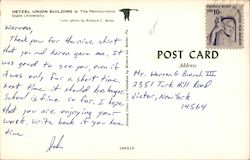 HETZEL UNION BUILDING at The Pennsylvania
State University.
Color photo by Richard C. Miller
Warren,
Thank you for the nice shirt
that you and Karen gave me. It
was good to see you, even if
it was only for a short time.
Next time it should be longer.
School is fine so far. I hope
that you are enjoying your
work. Write back if you have
time.
John
POST CARD
Address
Mr. Warren G Brandt III
2351 Turk Hill Road
Victor, New York
14564